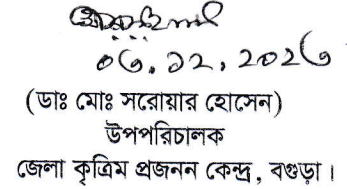 ০৬.১২.২০২৬
(ডাঃ মোঃ সরোয়ার হোসেন)
উপপরিচালক
জেলা কৃত্রিম প্রজনন কেন্দ্র, বগুড়া।